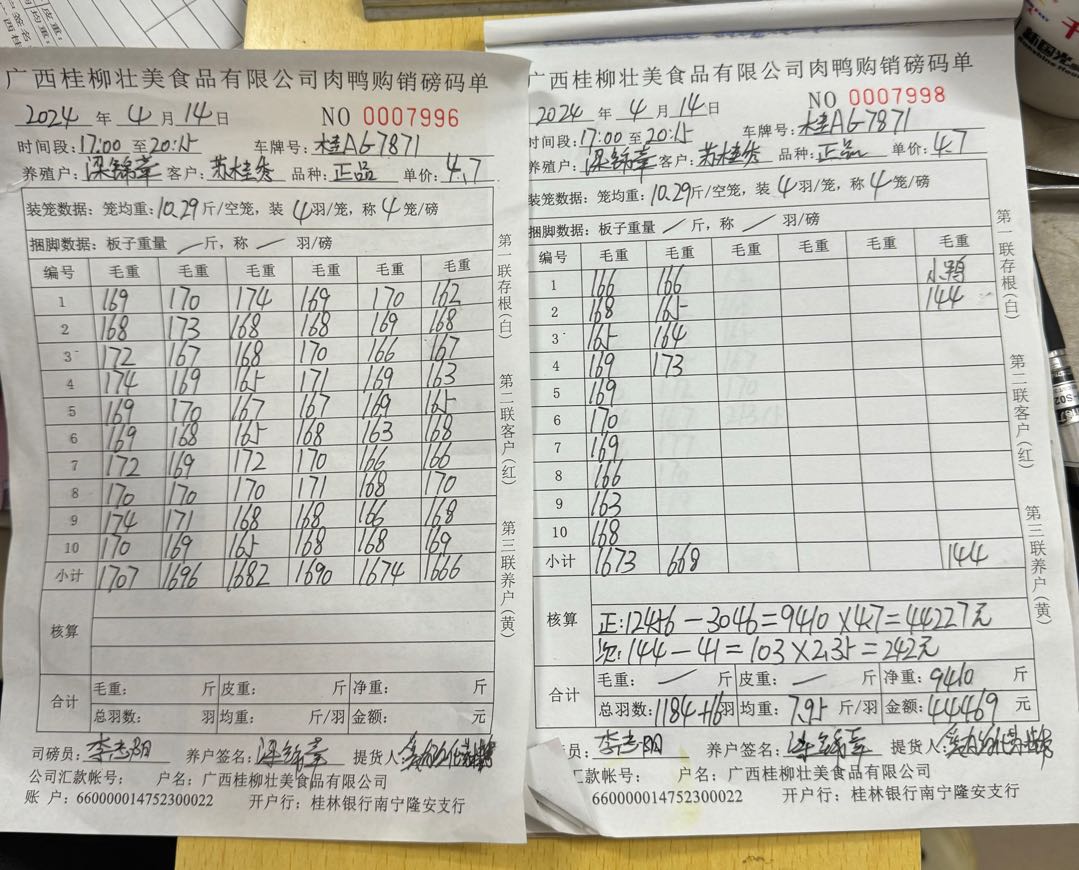 广西桂柳壮美食品有限公司肉鸭购销磅码单
2024 年 4 月 14 日 NO 0007996
时间段: 17:00 至 20:15 车牌号: 桂AG7871
养殖户: 梁锦章 客户: 苏桂秀 品种: 正品 单价: 4.7
装笼数据: 笼均重: 10.29 斤/空笼, 装 4 羽/笼, 称 4 笼/磅
捆脚数据: 板子重量 / 斤, 称 / 羽/磅
编号 毛重 毛重 毛重 毛重 毛重 毛重
1 169 170 174 169 170 162
2 168 173 168 168 169 168
3 172 167 168 170 166 167
4 174 169 165 171 169 163
5 169 170 167 167 169 165
6 169 168 165 168 163 168
7 172 169 172 170 166 166
8 170 170 170 171 168 170
9 174 171 168 168 166 168
10 170 169 165 168 168 169
小计 1707 1696 1682 1690 1674 1666
核算
合计 毛重: 斤 皮重: 斤 净重: 斤
总羽数: 羽 均重: 斤/羽 金额: 元
司磅员: 养户签名: 梁锦章 提货人:
公司汇款帐号: 户名: 广西桂柳壮美食品有限公司
账 户: 660000014752300022 开户行: 桂林银行南宁隆安支行
第一联存根(白)
第二联客户(红)
第三联养户(黄)
广西桂柳壮美食品有限公司肉鸭购销磅码单
2024 年 4 月 14 日 NO 0007998
时间段: 17:00 至 20:15 车牌号: 桂AG7871
养殖户: 梁锦章 客户: 苏桂秀 品种: 正品 单价: 4.7
装笼数据: 笼均重: 10.29 斤/空笼, 装 4 羽/笼, 称 4 笼/磅
捆脚数据: 板子重量 / 斤, 称 / 羽/磅
编号 毛重 毛重 毛重 毛重 毛重 毛重
1 166 166
2 168 165 144
3 165 164
4 169 173
5 169
6 170
7 169
8 166
9 163
10 168
小计 1673 668 144
核算 正: 12456-3046=9410×4.7=44227元
次: 144-41=103×2.35=242元
合计 毛重: / 斤 皮重: / 斤 净重: 9410 斤
总羽数: 1184+16 羽 均重: 7.95 斤/羽 金额: 44469 元
员: 养户签名: 梁锦章 提货人:
汇款帐号: 户名: 广西桂柳壮美食品有限公司
660000014752300022 开户行: 桂林银行南宁隆安支行
第一联存根(白)
第二联客户(红)
第三联养户(黄)